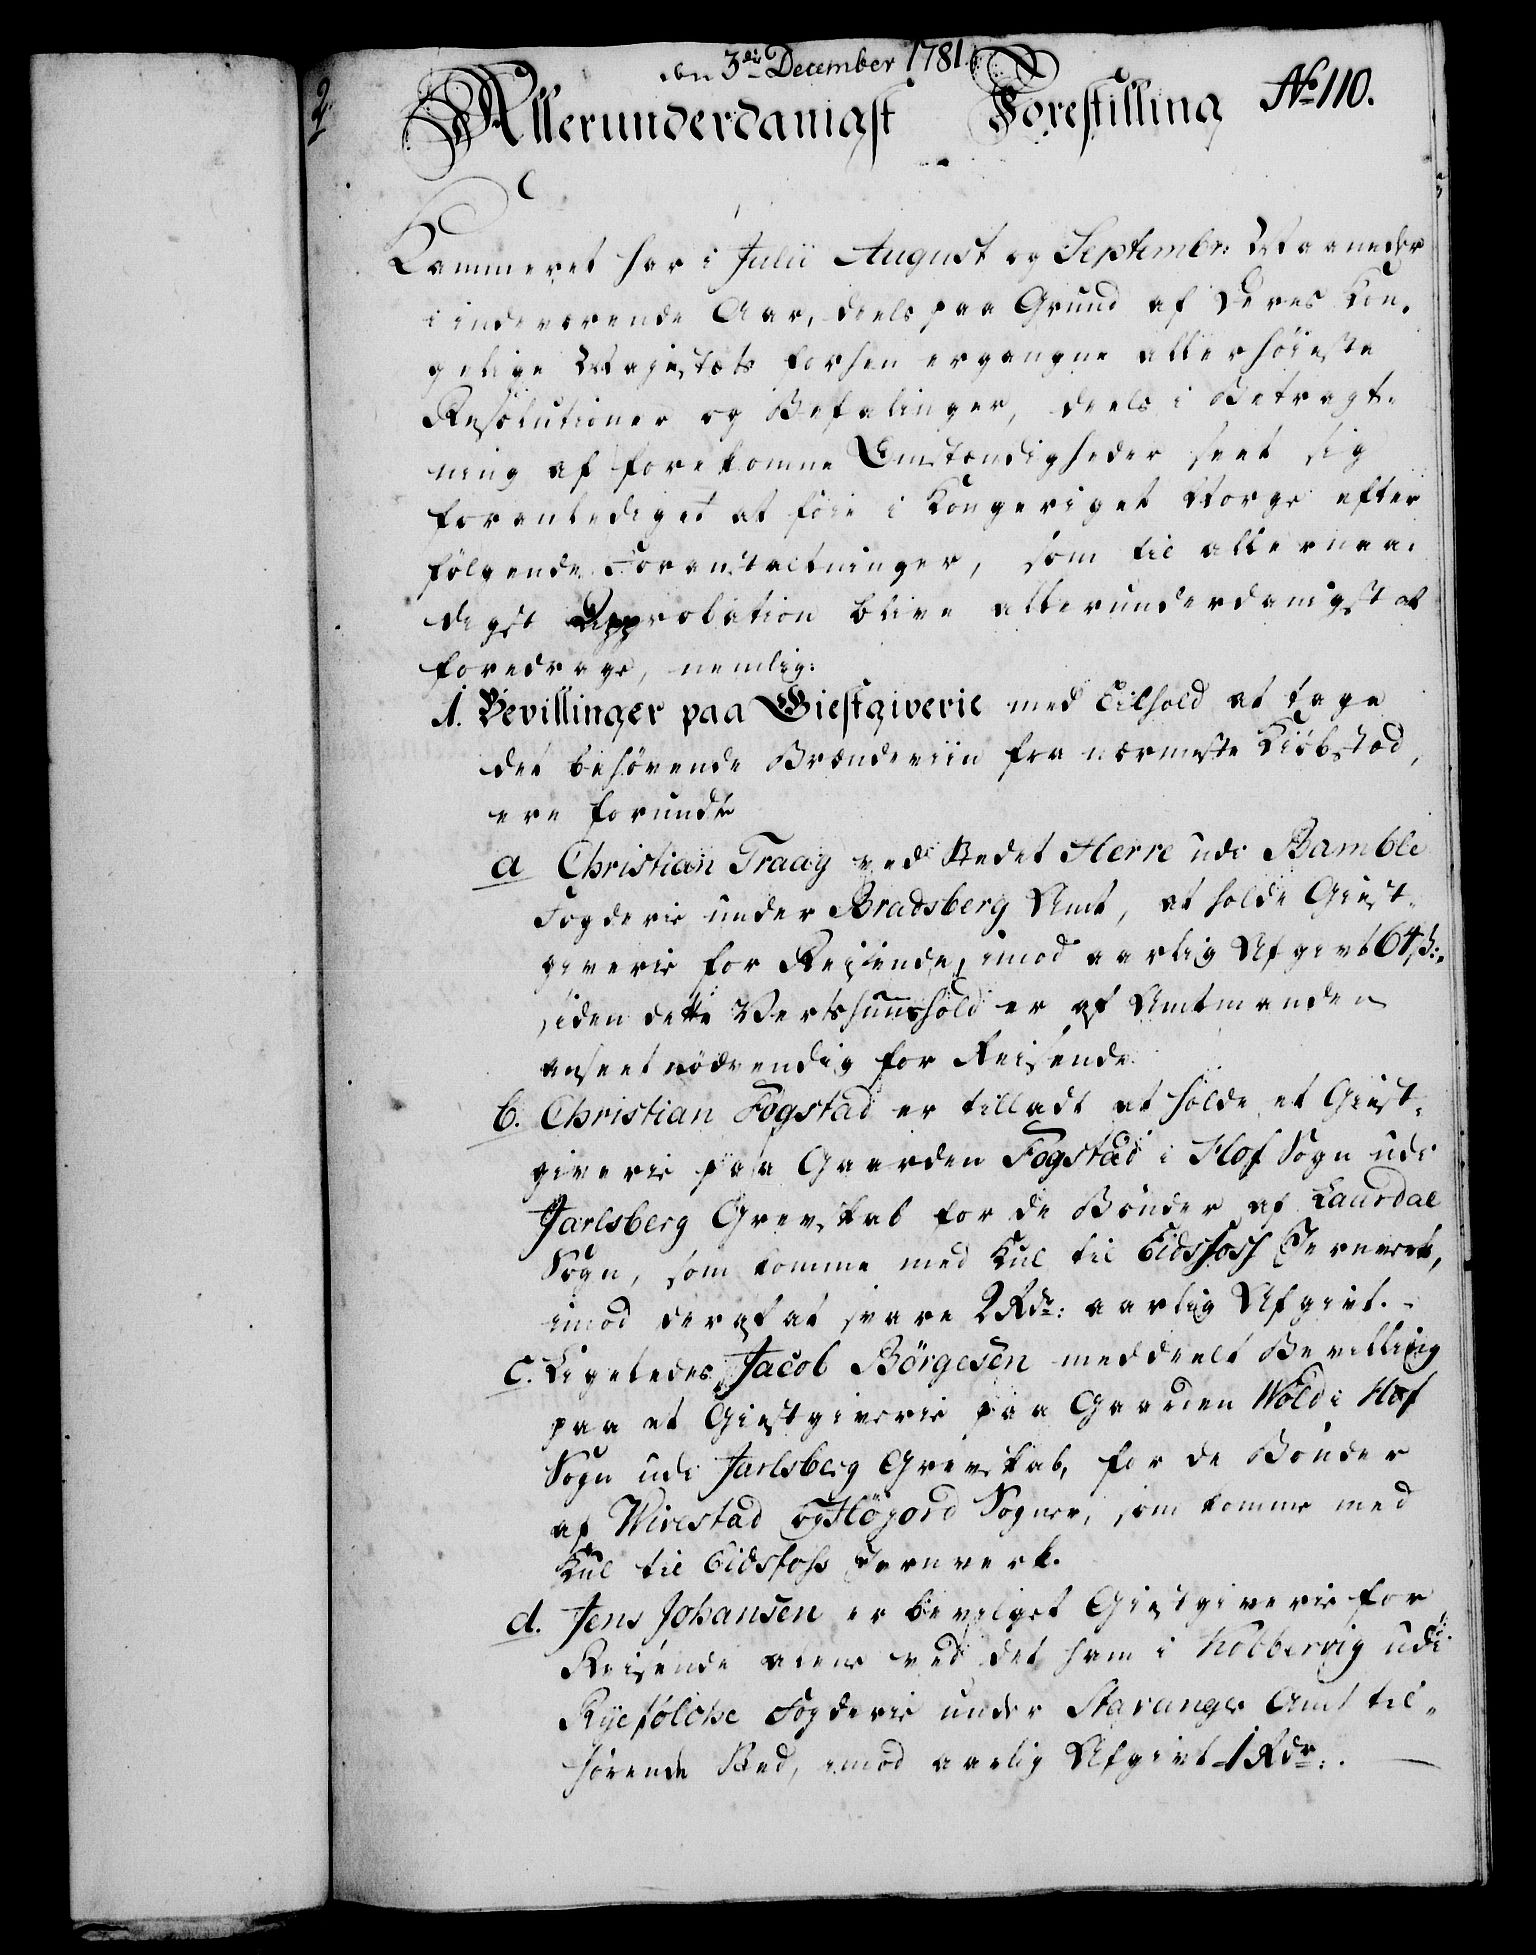 den 3de December 1781.
Allerunderdanigst Forestilling No 110.
2
Kammeret har i Julii August og Septembr: Maaneder
i indeværende Aar, deels paa Grund af Deres Kon-
gelige Majestæts forhen ergangne allerhöieste
Resolutioner og Befalinger, deels i Betragt-
ning af forekomne Omstændigheder seet sig
foranlediget at föie i Kongeriget Norge efter
fölgende Foranstaltninger, som til allernaa-
digst Approbation blive allerunderdanigst at
foredrage, nemlig:
1. Bevillinger paa Giestgiverie med Tilhold at tage
det behövende Brændeviin fra nærmeste Kiöbstad,
ere forundte
a Christian Traag ved Stedet Herre udi Bamble
Fogderie under Bradsberg Amt, at holde Giest-
giverie for Reisende, imod aarlig Afgivt 64 s:,
siden dette Vertshuushold er af Amtmanden
anseet nödvendig for Reisende.
b. Christian Fogstad er tilladt at holde et Giest-
giverie paa Gaarden Fogstad i Hof Sogn udi
Jarlsberg Grevskab for de Bönder af Laurdal
Sogn, som komme med Kul til Eidsfoss Jernverk,
imod deraf at svare 2 Rdr: aarlig Afgivt. -
c. Ligeledes Jacob Börgesen meddeelt Bevilling
paa et Giestgiverie paa Gaarden Wold i Hof
Sogn udi Jarlsberg Grevskab, for de Bönder
af Wivestad og Höyord Sogner, som komme med
Kul til Eidsfoss Jernverk.
d. Jens Johansen er bevilget Giestgiverie for
Reisende alene ved det ham i Kolbervig udi
Ryefölche Fogderie under Stavanger Amt til-
hörende Sted, imod aarlig Afgivt 1 Rdr:. —